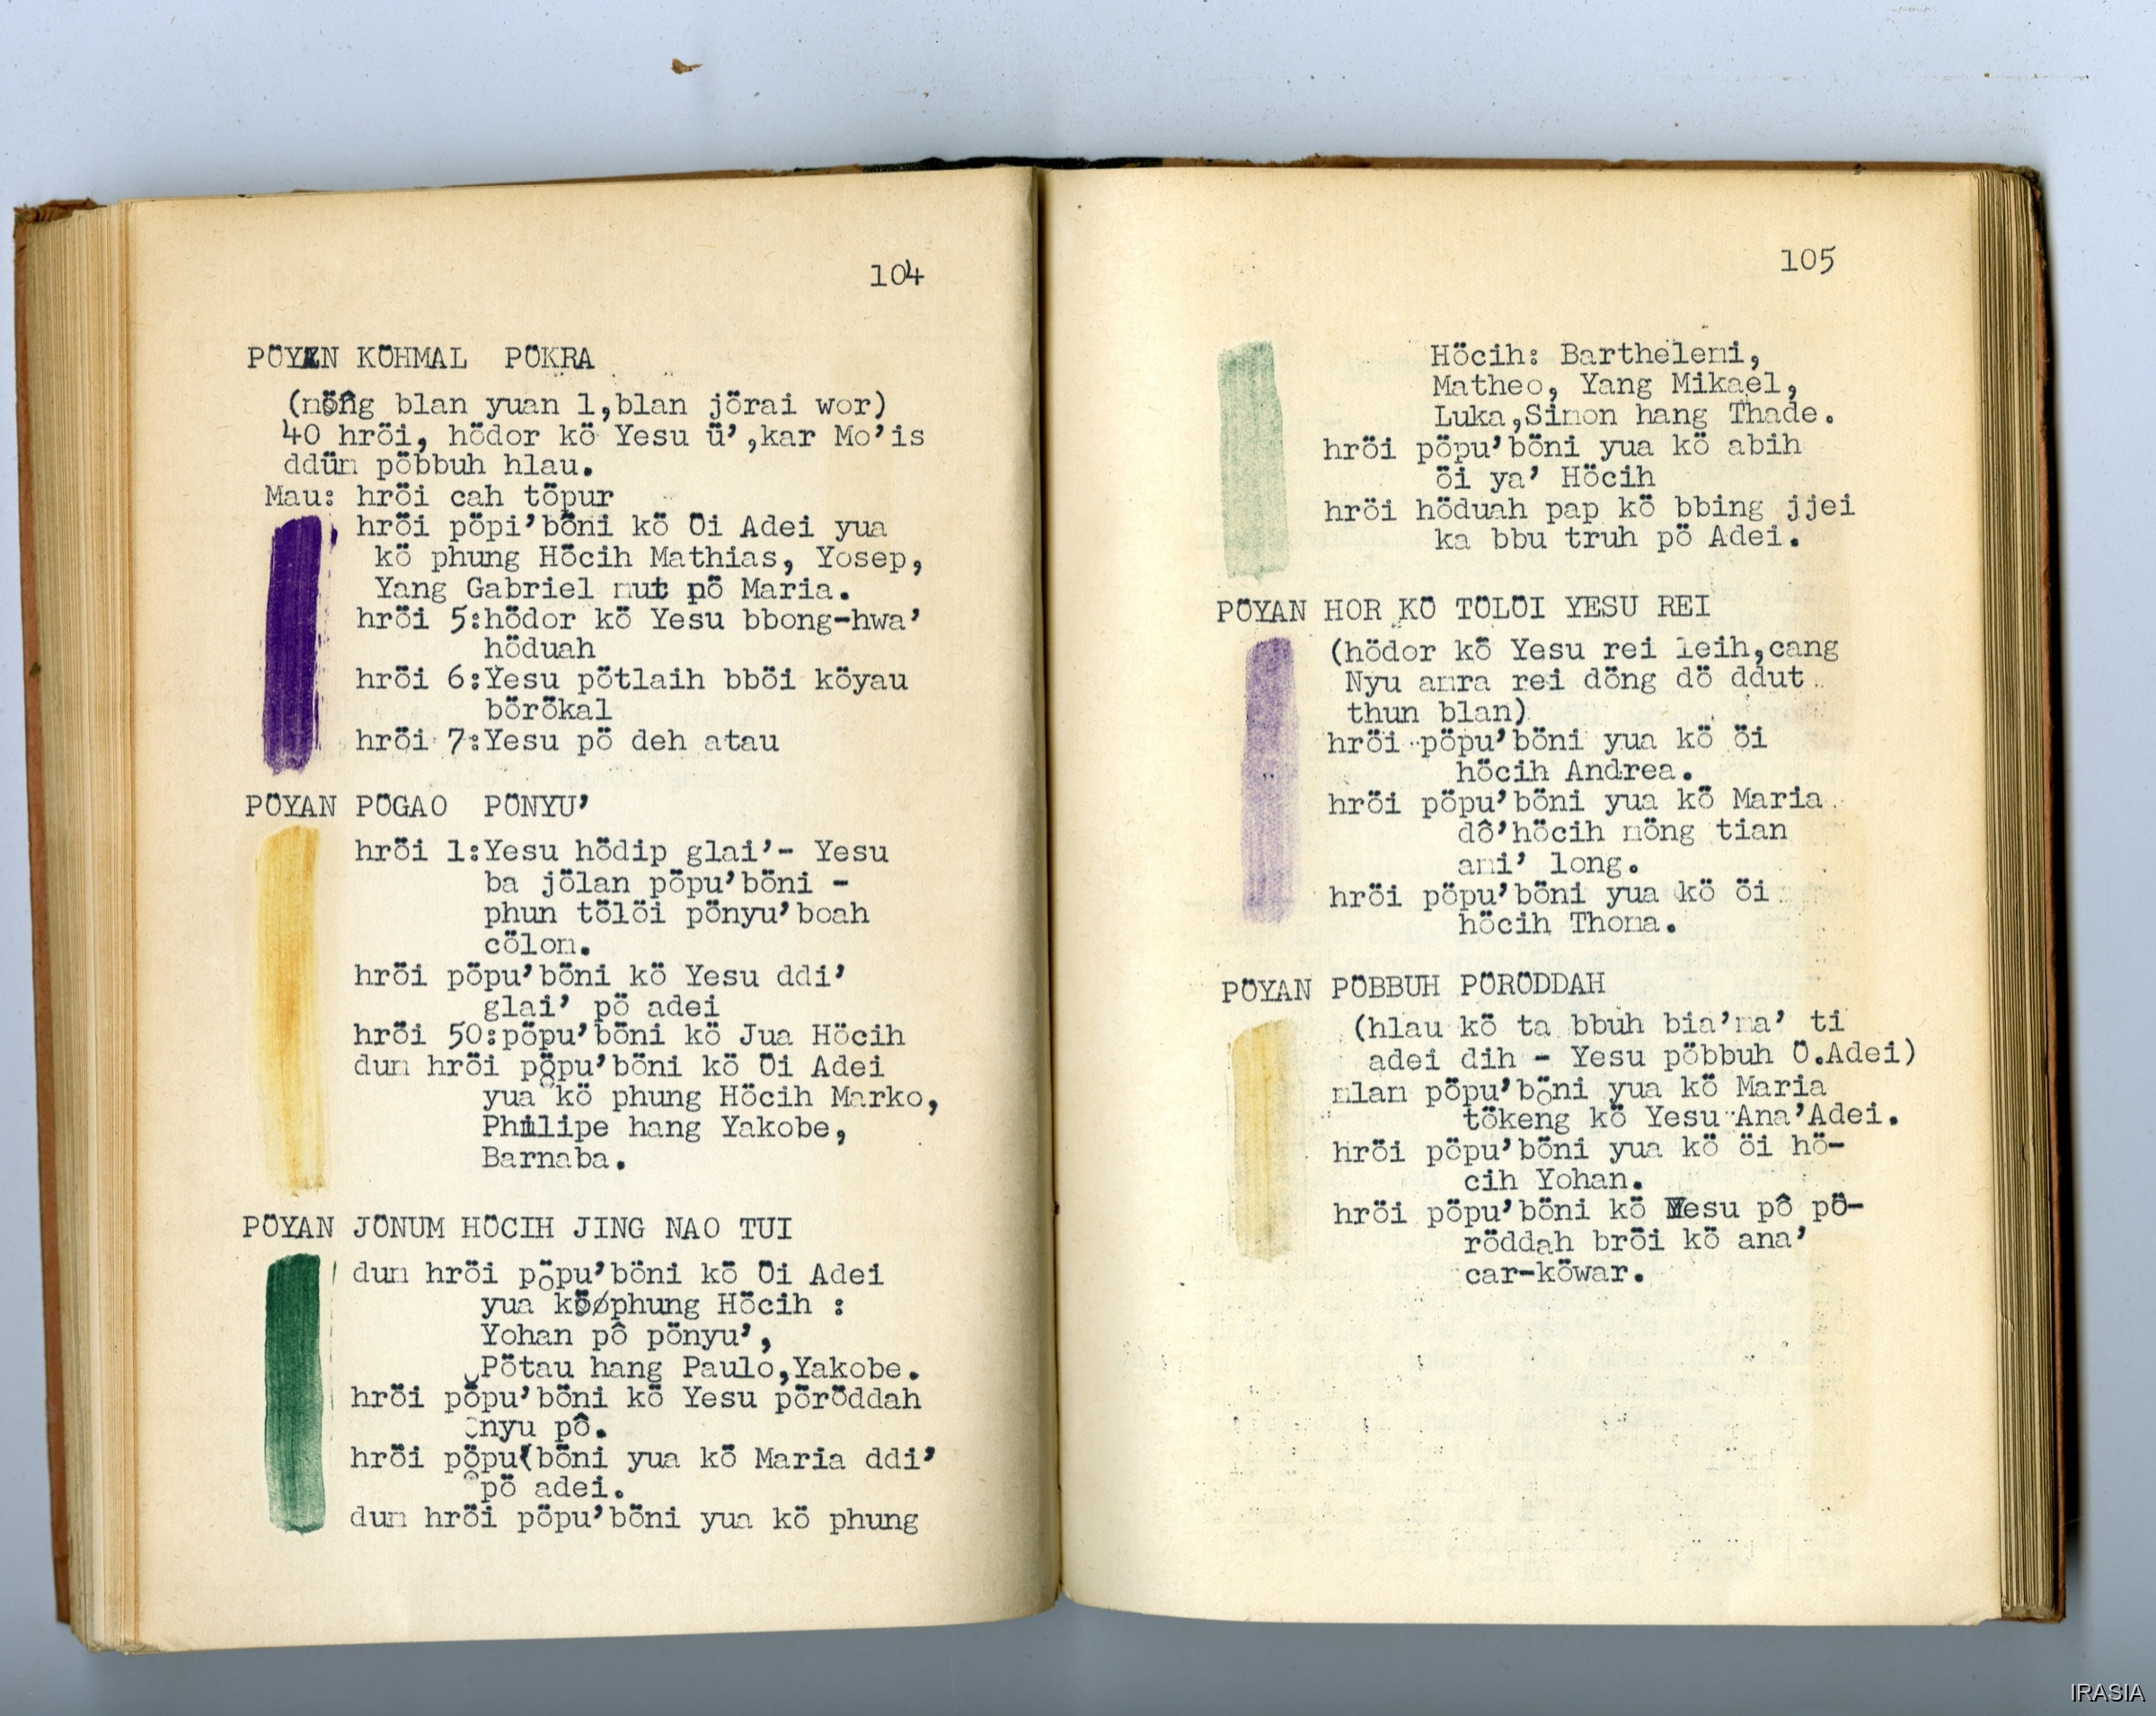 104
PÖYAN KÖHMAL PÖKRA
(nöng blan yuan 1,blan jörai wor)
40 hröi, hödor kö Yesu ü',kar Mo'is
ddüm pöbbuh hlau.
Mau: hröi cah töpur
hröi pöpi'böni kö Öi Adei yua
kö phung Höcih Mathias, Yosep,
Yang Gabriel mut pö Maria.
hröi 5:hödor kö Yesu bbong-hwa'
höduah
hröi 6:Yesu pötlaih bböi köyau
börökal
hröi 7:Yesu pö deh atau
PÖYAN PÖGAO PÖNYU'
hröi 1:Yesu hödip glai'- Yesu
ba jölan pöpu'böni -
phun tölöi pönyu'boah
cölom.
hröi pöpu'böni kö Yesu ddi'
glai' pö adei
hröi 50:pöpu'böni kö Jua Höcih
dum hröi pöpu'böni kö Öi Adei
yua kö phung Höcih Marko,
Philipe hang Yakobe,
Barnaba.
PÖYAN JÖNUM HÖCIH JING NAO TUI
dum hröi pöpu'böni kö Öi Adei
yua kö phung Höcih :
Yohan pô pönyu',
Pötau hang Paulo,Yakobe.
hröi pöpu'böni kö Yesu pöröddah
önyu pô.
hröi pöpu'böni yua kö Maria ddi'
pö adei.
dum hröi pöpu'böni yua kö phung
105
Höcih: Barthelemi,
Matheo, Yang Mikael,
Luka,Simon hang Thade.
hröi pöpu'böni yua kö abih
öi ya' Höcih
hröi höduah pap kö bbing jjei
ka bbu truh pö Adei.
PÖYAN HOR KÖ TÖLÖI YESU REI
(hödor kö Yesu rei leih,cang
Nyu amra rei döng dö ddut
thun blan)
hröi pöpu'böni yua kö öi
höcih Andrea.
hröi pöpu'böni yua kö Maria
dô'höcih möng tian
ami' long.
hröi pöpu'böni yua kö öi
höcih Thoma.
PÖYAN PÖBBUH PÖRÖDDAH
(hlau kö ta bbuh bia'ma' ti
adei dih - Yesu pöbbuh Ö.Adei)
mlam pöpu'böni yua kö Maria
tökeng kö Yesu Ana'Adei.
hröi pöpu'böni yua kö öi hö-
cih Yohan.
hröi pöpu'böni kö Yesu pô pö-
röddah bröi kö ana'
car-köwar.
IRASIA